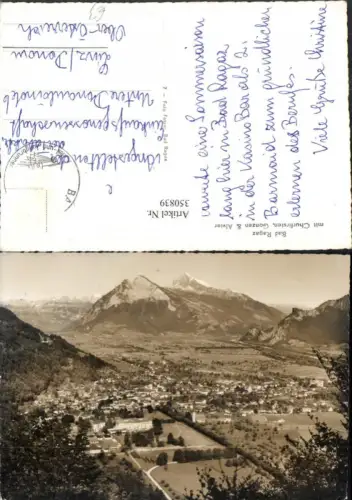 konnte eine Sommersaison
lang hier in Bad Ragaz
in der Kursino Bar als 2.
Barmaid zum gründlichen
erlernen des Berufes.
Viele Grüße Christine
Angestellten d.
Einkaufsgenossenschaft
Unter Donaulände
Linz / Donau
Ober-Österreich
Bad Ragaz
mit Churfirsten, Gonzen & Alvier
Artikel Nr.
350839